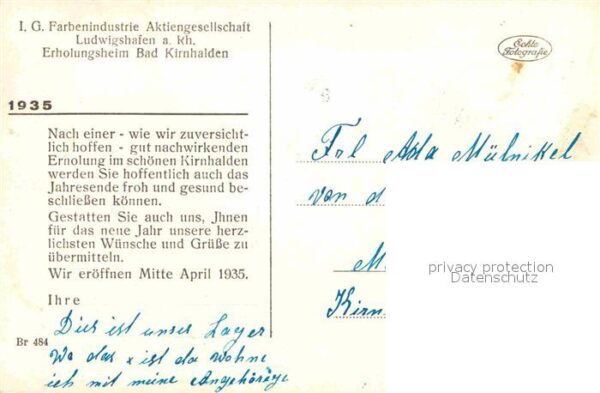 I. G. Farbenindustrie Aktiengesellschaft
Ludwigshafen a. Rh.
Erholungsheim Bad Kirnhalden
1935
Nach einer - wie wir zuversicht-
lich hoffen - gut nachwirkenden
Erholung im schönen Kirnhalden
werden Sie hoffentlich auch das
Jahresende froh und gesund be-
schließen können.
Gestatten Sie auch uns, Jhnen
für das neue Jahr unsere herz-
lichsten Wünsche und Grüße zu
übermitteln.
Wir eröffnen Mitte April 1935.
Ihre
Br 484
Dies ist unser Lager
Wo das x ist da wohne
ich mit meine Angehörige
Echte
Fotografie
Frl Ada Mülnikel
von d
M
Kirn
privacy protection
Datenschutz